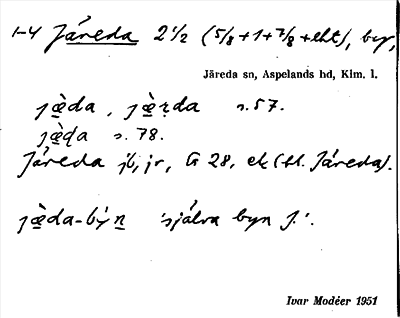 1-4 Järeda 2 1/2 (5/8+1+7/8+eht), by,
Järeda sn, Aspelands hd, Klm. l.
jæ̀da, jæ̀r̥da s. 57.
jæ̀ḍa s. 78.
Järeda jb, jr, G 28, ek (tl. Järeda).
jæ̀da-býn 'själva byn J.'.
Ivar Modéer 1951